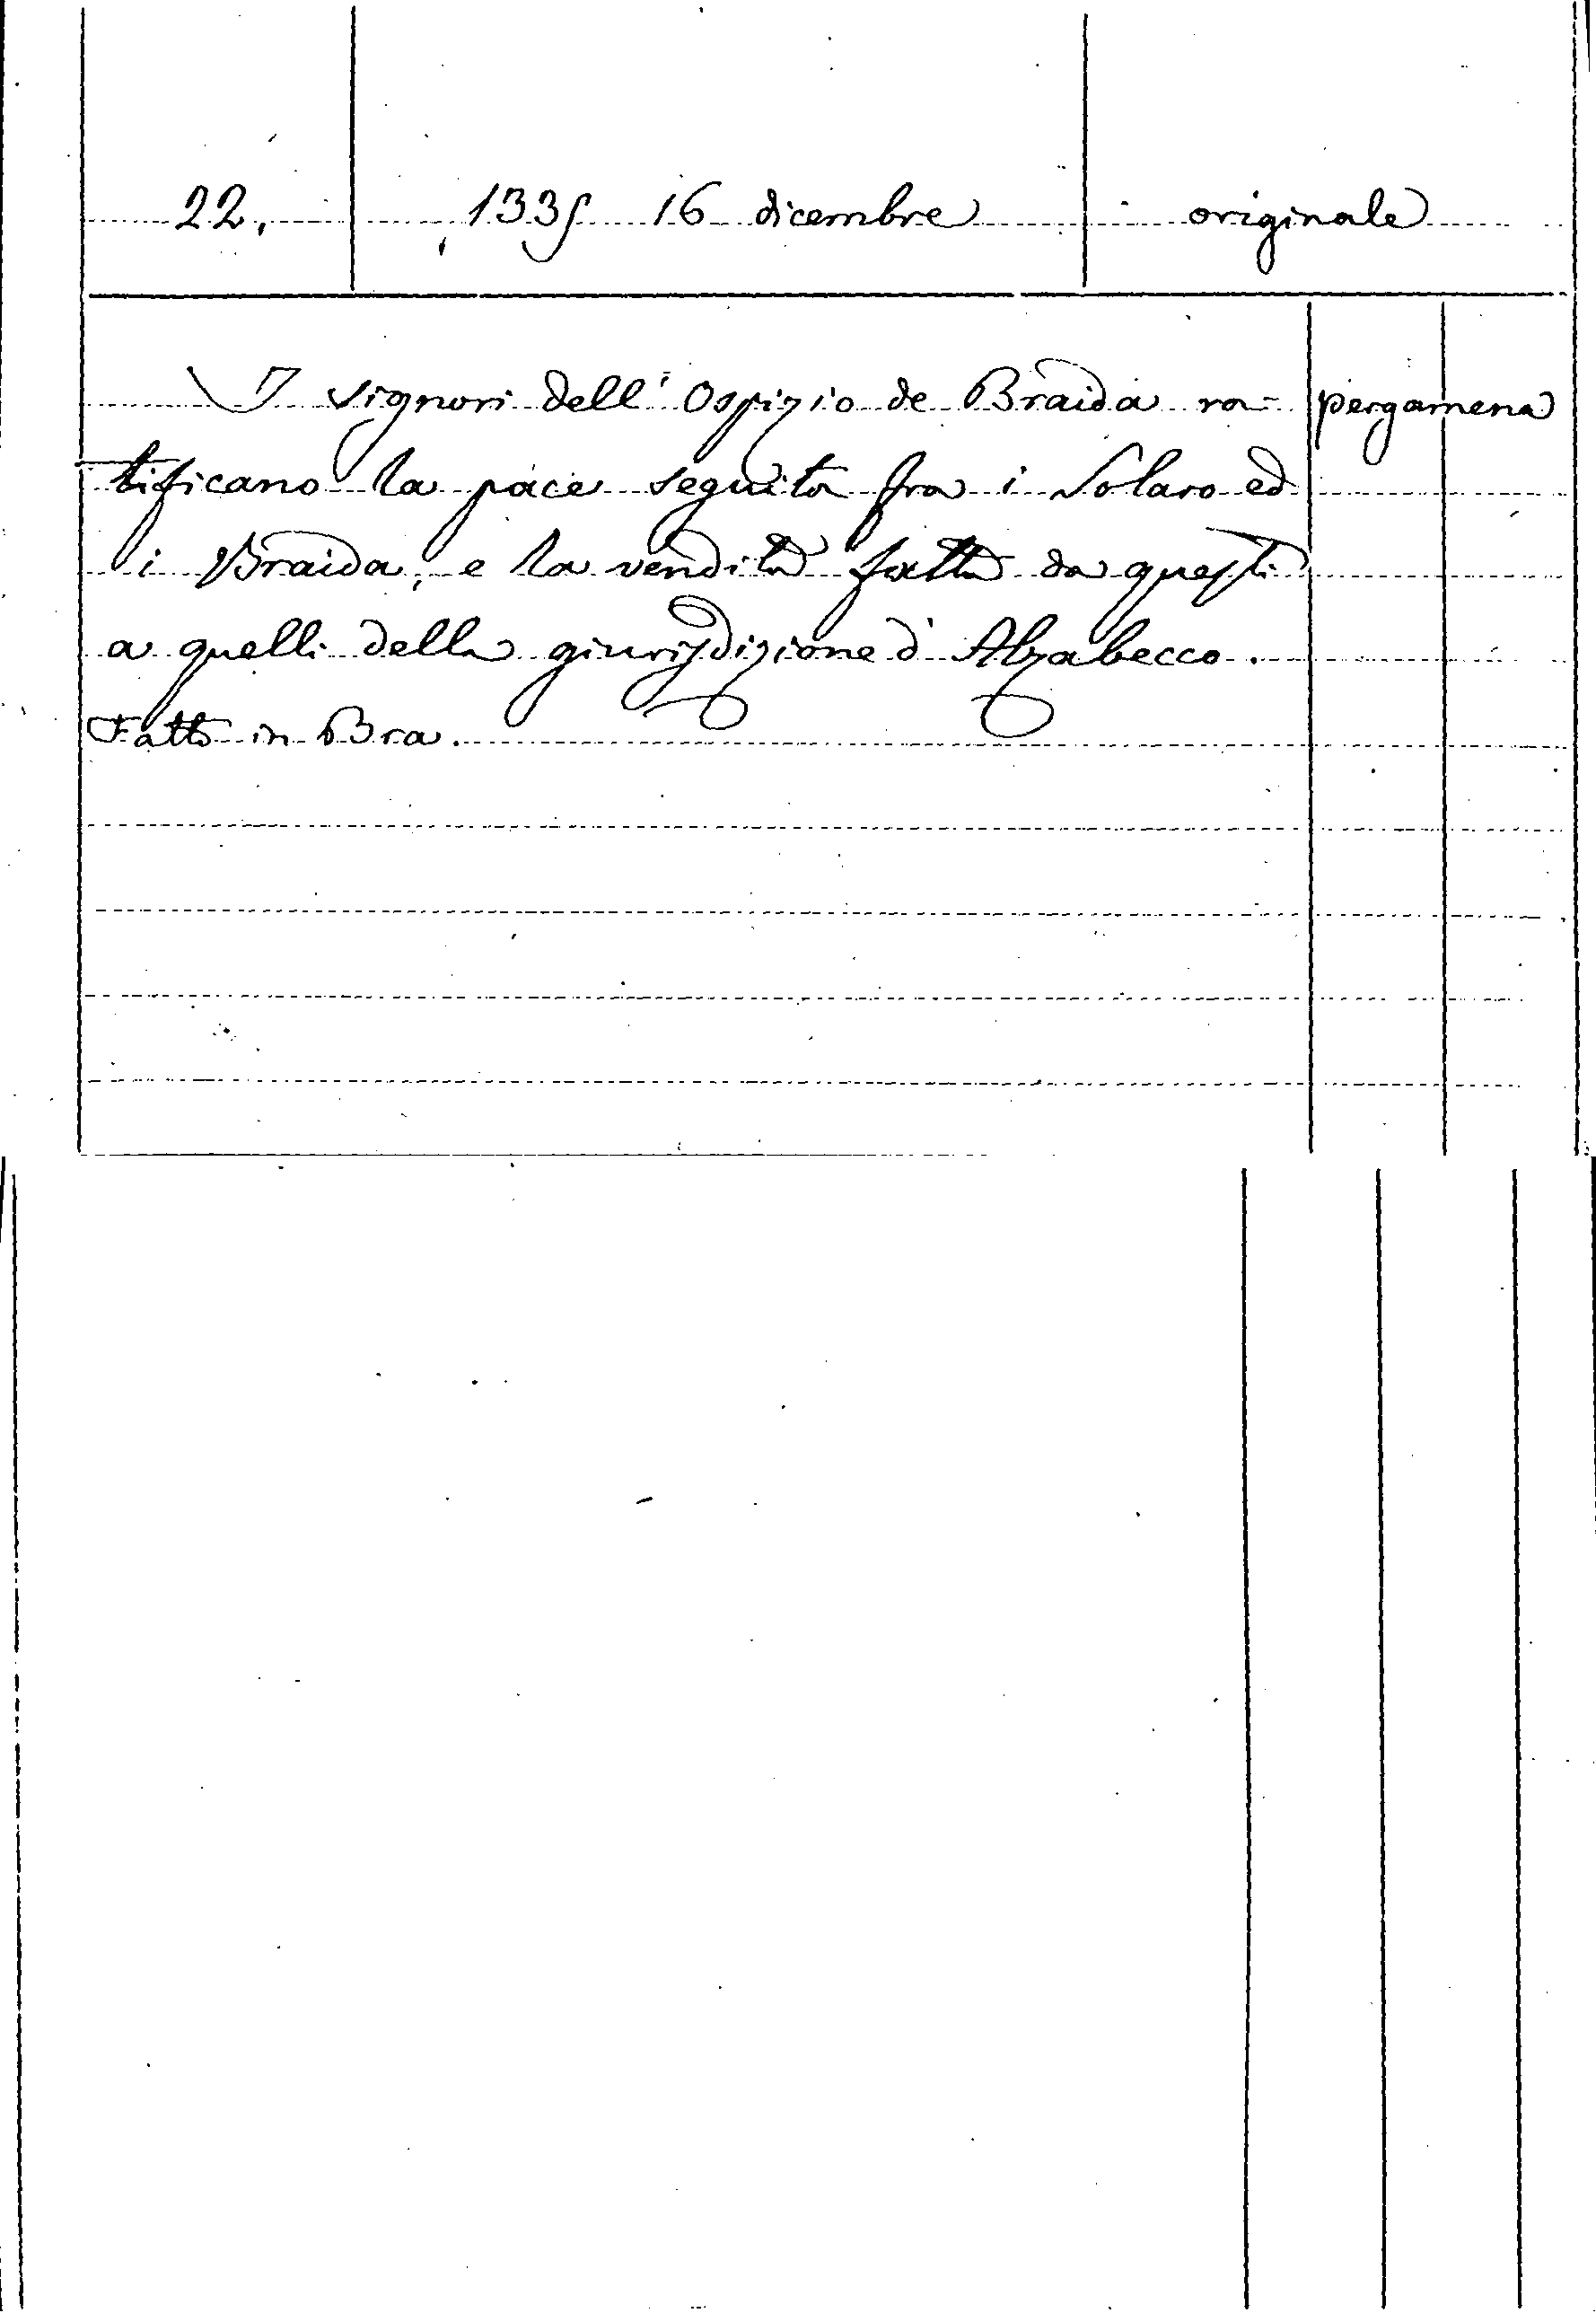 22. 1335 16 dicembre originale
I signori dell' Ospizio de Braida ra- pergamena
tificano la pace seguita fra i Solaro ed
i Braida, e la vendita fatta da questi
a quelli della giurisdizione d'
Fatto in Bra.